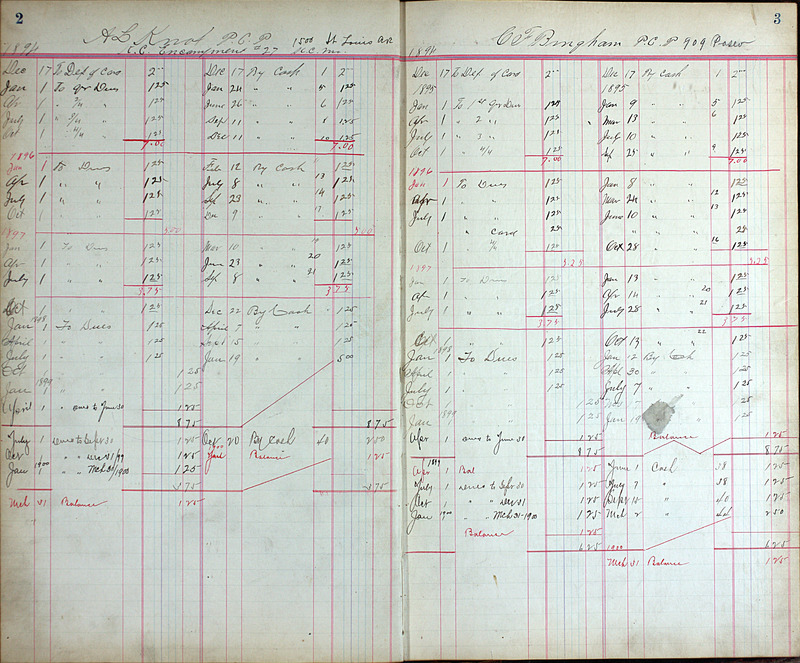 2
A L Knof P.C.P. 1500 St Louis Av
K.C. Encampment #27 K.C. Mo.
1894
Dec 17 To Dep of Card 2 00 Dec 17 By Cash 1 2 00
Jan 1 To qr Dues 1 25 Jan 24 " " 5 1 25
Ap 1 " 2/4 " 1 25 June 26 " " 6 1 25
July 1 " 3/4 " 1 25 Sep 11 " " 8 1 25
Oct 1 " 4/4 1 25 Dec 11 " " 10 1 25
7.00 7.00
1896
Jan 1 To Dues 1 25 Feb 12 By Cash 1 25
Ap 1 " " 1 25 July 8 " " 13 1 25
July 1 " " 1 25 Sep 23 " " 14 1 25
Oct 1 " " 1 25 Dec 9 " " 17 1 25
500 500
1897
Jan 1 To Dues 1 25 Mar 10 " " 1 25
Ap 1 " " 1 25 Jun 23 " " 20 1 25
July 1 " " 1 25 Sep 8 " " 21 1 25
3.75 3.75
Oct 1 " " 1 25 Dec 22 By Cash 1 25
Jan 1898 1 To Dues 1 25 April 7 " " 1 25
April 1 " " 1 25 Sept 5 " " 1 25
July 1 " " 1 25 Jan 19 " " 5 00
Oct 1 1 25
Jan 1899 1 " " 1 25
April 1 " dues to June 30 1 25
8 75 8 75
July 1 dues to Sept 30 1 25 Oct 20 By Cash 40 2 50
Oct 1 " " Dec 31/99 1 25 Balance 1 25
Jan 1900 1 " " Mch 31/1900 1 25
3 75 3 75
Mch 31 Balance 1 25
3
C F Bingham P.C.P 909 Paseo
1894
Dec 17 To Dep of Card 2 00 Dec 17 By Cash 1 2 00
1895 1895
Jan 1 To 1st qr Dues 1 25 Jan 9 " " 5 1 25
Apr 1 " 2 " 1 25 Mar 13 " " 6 1 25
July 1 " 3 " 1 25 July 10 " " 1 25
Oct 1 " 4/4 1 25 Sep 25 " " 9 1 25
7.00 7.00
1896
Jan 1 To Dues 1 25 Jan 8 " " 1 25
Apr 1 " " 1 25 Mar 24 " " 12 1 25
July 1 " " 1 25 June 10 " " 13 1 25
" Card 25 " " 25
Oct 1 " 1 25 Oct 28 " " 16 1 25
5 25 5 25
1897
Jan 1 To Dues 1 25 Jan 13 " " 1 25
Ap 1 " " 1 25 Apr 14 " " 20 1 25
July 1 " " 1 25 July 28 " " 21 1 25
3 75 3 75
Oct 1 " " 1 25 Oct 13 " " 22 1 25
Jan 1898 1 To Dues 1 25 Jan 12 By Cash 1 25
April 1 " " 1 25 Apl 30 " " 1 25
July 1 " " 1 25 July 7 " 1 25
Oct 1 1 25 1 25
Jan 1899 1 1 25 Jan 19 1 25
Apr 1 dues to June 30 1 25 Balance 1 25
8 75 8 75
Apr 1899 1 Bal 1 25 June 1 Cash 38 1 25
July 1 dues to Sept 30 1 25 July 7 " 38 1 25
Oct 1 " " Dec 31 1 25 Sept 15 " 40 1 25
Jan 1900 1 " " Mch 31-1900 1 25 Mch 2 " 44 2 50
Balance 1 25
6 25 1900 6 25
Mch 31 Balance 1 25